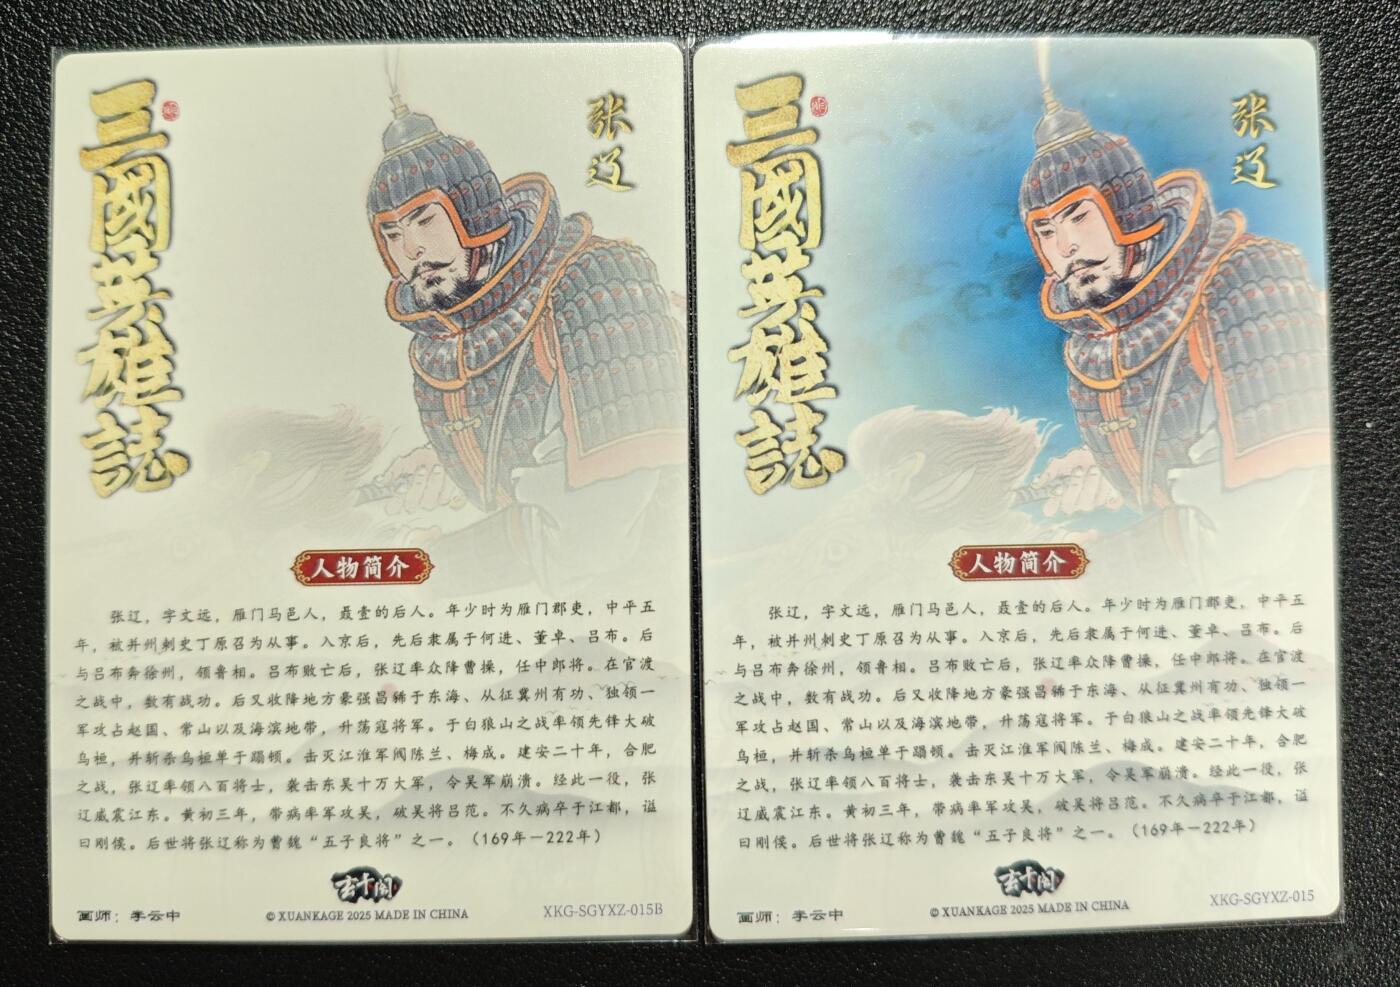 三國英雄誌
张辽
人物简介
张辽，字文远，雁门马邑人，聂壹的后人。年少时为雁门郡吏，中平五
年，被并州刺史丁原召为从事。入京后，先后隶属于何进、董卓、吕布。后
与吕布奔徐州，领鲁相。吕布败亡后，张辽率众降曹操，任中郎将。在官渡
之战中，数有战功。后又收降地方豪强昌豨于东海、从征冀州有功、独领一
军攻占赵国、常山以及海滨地带，升荡寇将军。于白狼山之战率领先锋大破
乌桓，并斩杀乌桓单于蹋顿。击灭江淮军阀陈兰、梅成。建安二十年，合肥
之战，张辽率领八百将士，袭击东吴十万大军，令吴军崩溃。经此一役，张
辽威震江东。黄初三年，带病率军攻吴，破吴将吕范。不久病卒于江都，谥
曰刚侯。后世将张辽称为曹魏“五子良将”之一。（169年—222年）
玄卡阁
画师：李云中
© XUANKAGE 2025 MADE IN CHINA
XKG-SGYXZ-015B
三國英雄誌
张辽
人物简介
张辽，字文远，雁门马邑人，聂壹的后人。年少时为雁门郡吏，中平五
年，被并州刺史丁原召为从事。入京后，先后隶属于何进、董卓、吕布。后
与吕布奔徐州，领鲁相。吕布败亡后，张辽率众降曹操，任中郎将。在官渡
之战中，数有战功。后又收降地方豪强昌豨于东海、从征冀州有功、独领一
军攻占赵国、常山以及海滨地带，升荡寇将军。于白狼山之战率领先锋大破
乌桓，并斩杀乌桓单于蹋顿。击灭江淮军阀陈兰、梅成。建安二十年，合肥
之战，张辽率领八百将士，袭击东吴十万大军，令吴军崩溃。经此一役，张
辽威震江东。黄初三年，带病率军攻吴，破吴将吕范。不久病卒于江都，谥
曰刚侯。后世将张辽称为曹魏“五子良将”之一。（169年—222年）
玄卡阁
画师：李云中
© XUANKAGE 2025 MADE IN CHINA
XKG-SGYXZ-015